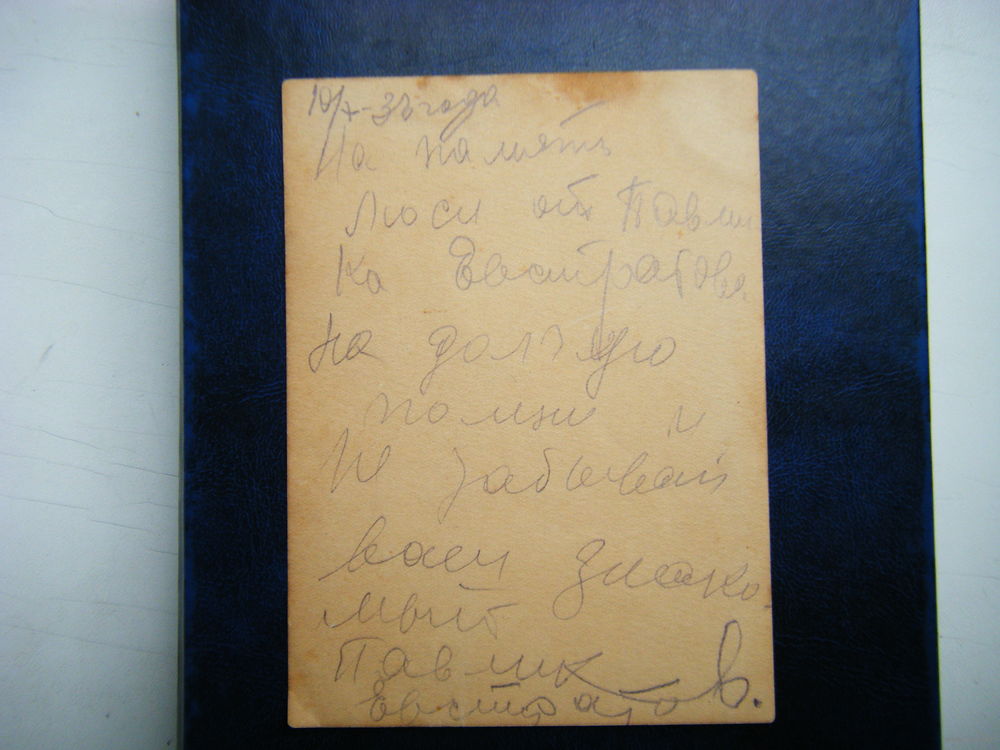 10/X-38 года
На память
Люси от Павли
ка Евстратова
на долгую
помни и
не забывай
ваш знако
мый
Павлик
Евстратов.